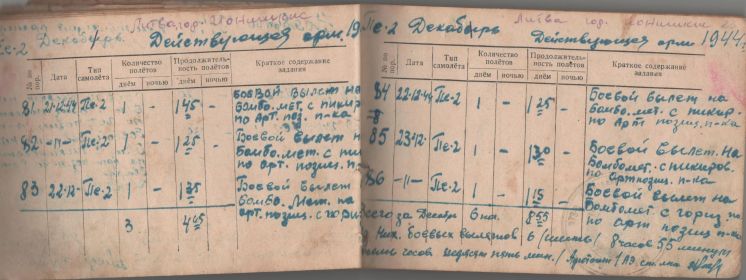 Литва гор. Ионишкис
Пе-2 Декабрь Действующая арм. 19
№ по пор. Дата Тип самолёта Количество полётов Продолжительность полётов Краткое содержание задания
днём ночью днём ночью
81 21-12-44 Пе-2 1 - 1 45 - Боевой вылет на
бомбо.мет. с пикир.
по Арт. поз. п-ка
82 -11- Пе-2 1 - 1 25 - Боевой вылет н
бомбо.мет. с пикир
по арт. позиц. п-
83 22-12- Пе-2 1 - 1 35 Боевой вылет
бомбо. Мет. на
арт. позиц. с гориз
3 4 45
Литва гор. Ионишкис
Пе-2 Декабрь Действующая арм. 1944г.
№ по пор. Дата Тип самолёта Количество полётов Продолжительность полётов Краткое содержание задания
днём ночью днём ночью
84 22-12-44 Пе-2 1 - 1 25 - Боевой вылет на
бомбо.мет. с пикир.
по Арт. позиц. п-ка
85 23-12- Пе-2 1 - 1 30 - Боевой вылет. На
бомбомет. с пикиров.
по арт позиц. п-ка
86 -11- Пе-2 1 - 1 15 - Боевой вылет на
бомбомет с гориз по
по арт позиц п-ка
его за Декабрь 6 пол. 8 55
Них. боевых вылетов 6 (шесть) 8 часов 55 минут
часов пять мин.